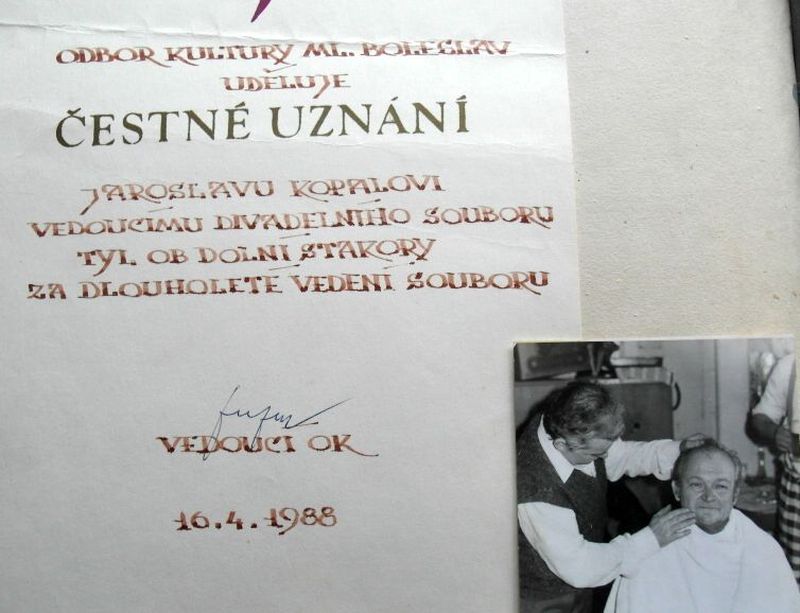 ODBOR KULTURY ML. BOLESLAV
UDĚLUJE
ČESTNÉ UZNÁNÍ
JAROSLAVU KOPALOVI
VEDOUCÍMU DIVADELNÍHO SOUBORU
TYL OB DOLNÍ STAKORY
ZA DLOUHOLETÉ VEDENÍ SOUBORU
VEDOUCÍ OK
16.4.1988